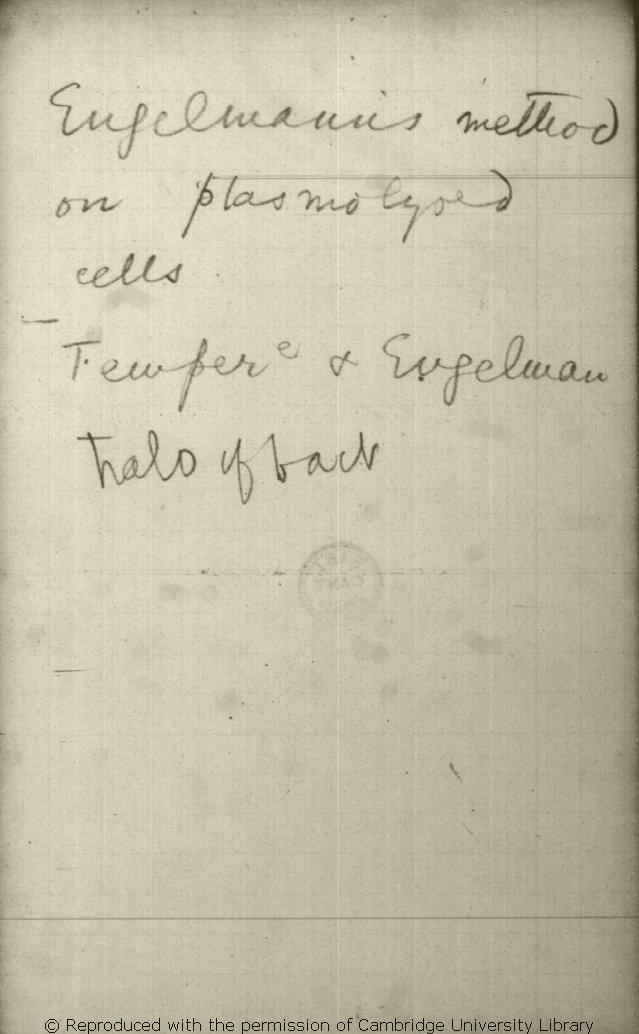 Engelmann's method
on plasmolysed
cells
—
Temper^e & Engelman
halo of bact
—
© Reproduced with the permission of Cambridge University Library